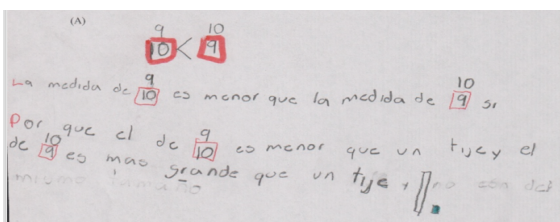 (A)
9/10 < 10/9
La medida de 9/10 es menor que la medida de 10/9 si
Por que el de 9/10 es menor que un tije y el
de 10/9 es mas grande que un tije y no son del
mismo tamaño